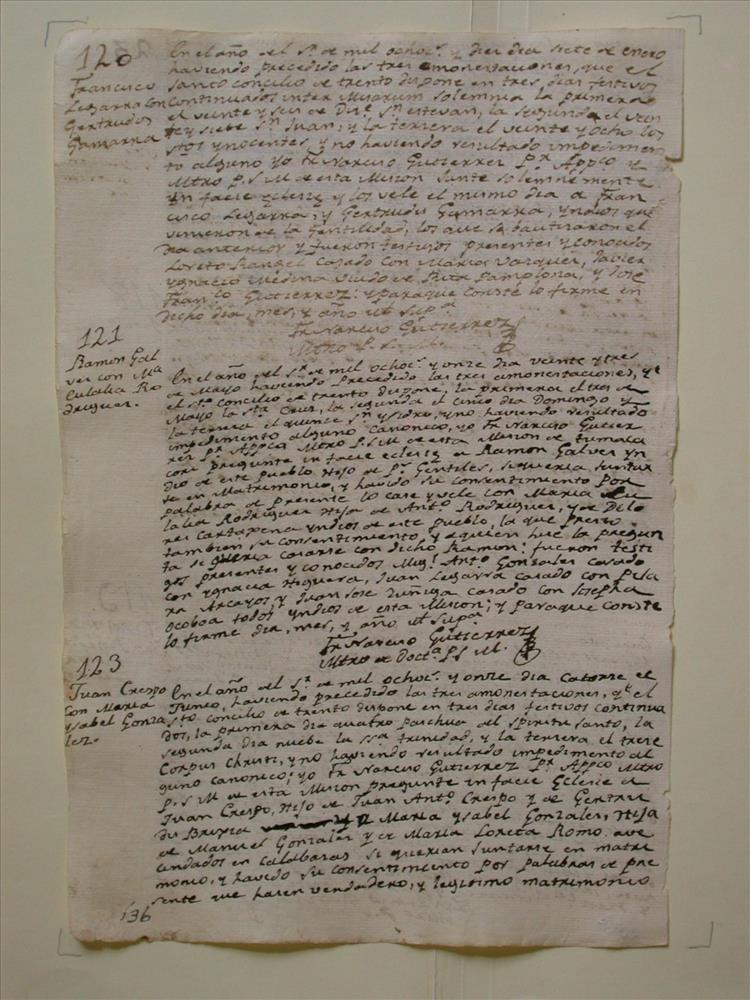 120
Francisco
Legarra con
Gertrudis
Gamarra
En el año del Sr. de mil ochoc.s y diez dia siete de enero
haviendo precedido las tres amonestaciones, que el
Santo concilio de trento dispone en tres dias festivos
continuados inter Misarum solemnia la primera
el veinte y seis de Dice. Sn. estevan, la segunda el vein
te y siete Sn. Juan; y la tercera el veinte y ocho los
Stos ynocentes, y no haviendo resultado impedimen
to alguno yo Fr. Narciso Gutierrez Pr. Appco y
Mtro p. S. M. de esta Mision Junte solemnemente
yn facie eclesie y los vele el mismo dia a Fran
cisco Legarra, y Gertrudis Gamarra, yndios que
vinieron de la Gentilidad, los que se bautizaron el
dia anterior y fueron testigos presentes y conocidos
Loreto Rangel casado con Maria Vazquez, Javier
ygnacio Medina viudo de Rita Pamplona, y Jose
Fran.co Gutierrez: y paraque conste lo firme en
dicho dia, mes, y año ut Supa.
Fr. Narciso Gutierrez
Mtro
121
Ramon Gal
vez con Ma
Eulalia Ro
driguez.
En el año del Sr. de mil ochoc.s y onze dia veinte y tres
de Mayo haviendo precedido las tres amonestaciones, qe
el Sto. concilio de trento dispone, la primera el tres de
Mayo la Sta. Cruz, la segunda el cinco dia Domingo y
la tercera el quince Sn. ysidro, y no haviendo resultado
impedimento alguno canonico, yo Fr. Narciso Gutier
rez Pr. Appco Mtro P. S. M. de esta Mision de tumaca
cori pregunte in facie eclesie a Ramon Galvez yn
dio de este pueblo Hijo de Ps. Gentiles, si queria Juntar
se en Matrimonio, y havido su consentimiento por
palabras de presente lo case y vele con Maria Eu
lalia Rodriguez Hija de Anto. Rodriguez, y de Dolo
res Cartagena yndios de este pueblo, la que presto
tambien su consentimiento, y a quien hice la pregun
ta si queria casarse con dicho Ramon: fueron testi
gos presentes y conocidos Mig.l Anto. Gonzales casado
con ygnacia Higuera, Juan Legarra casado con Pila
ra Arcayos, y Juan Jose Zuñiga casado con Josepha
ocoboa todos yndios de esta Mision; y paraque conste
lo firme dia, mes, y año ut Supa.
Fr. Narciso Gutierrez
Mtro de Docta. P. S. M.
123
Juan Crespo
con Maria
ysabel Gonza
lez.
En el año del Sr. de mil ochoc.s y onze dia catorze de
Junio, haviendo precedido las tres amonestaciones, qe. el
Sto. concilio de trento dispone en tres dias festivos continua
dos, la primera dia quatro paschua del Spiritu Santo, la
segunda dia nuebe la SSa. trinidad, y la tercera el treze
Corpus Christi, y no haviendo resultado impedimento al
guno canonico; yo Fr. Narciso Gutierrez Pr. Appco Mtro
P. S. M. de esta Mision pregunte in facie Eclesie a
Juan Crespo, Hijo de Juan Anto. Crespo y de Gertru
dis Bruxia y a Maria ysabel Gonzales, Hija
de Manuel Gonzalez y de Maria Loreta Romo ave
cindados en Calabazas si querian Juntarse en matri
monio, y havido su consentimiento por palabras de pre
sente que hacen verdadero, y legitimo matrimonio
136